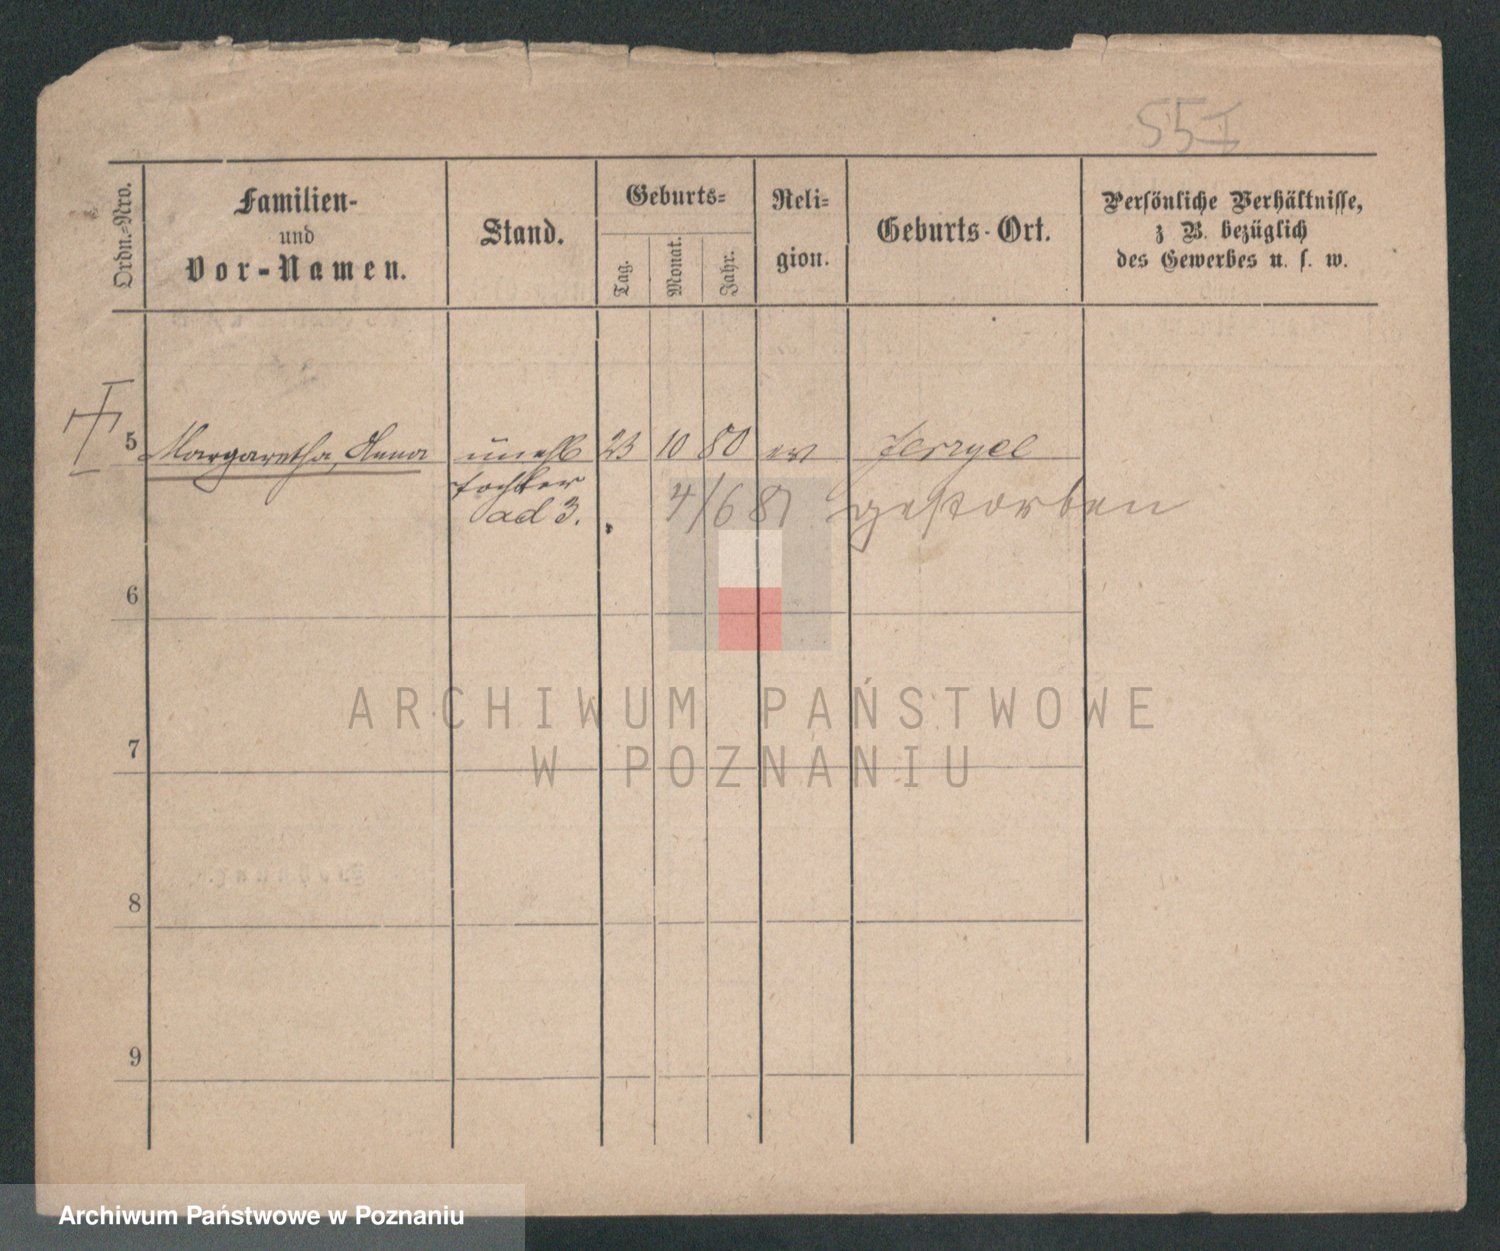 551
Ordn.-Nro.
Familien-
und
Vor-Namen.
Stand.
Geburts-
Tag.
Monat.
Jahr.
Reli-
gion.
Geburts-Ort.
Persönliche Verhältnisse,
z B. bezüglich
des Gewerbes u. s. w.
5 Margaretha, Anna unehl 23 10 80 ev
tochter 4/6 81 gestorben
ad 3.
6
7
8
9
ARCHIWUM PAŃSTWOWE
W POZNANIU
Archiwum Państwowe w Poznaniu